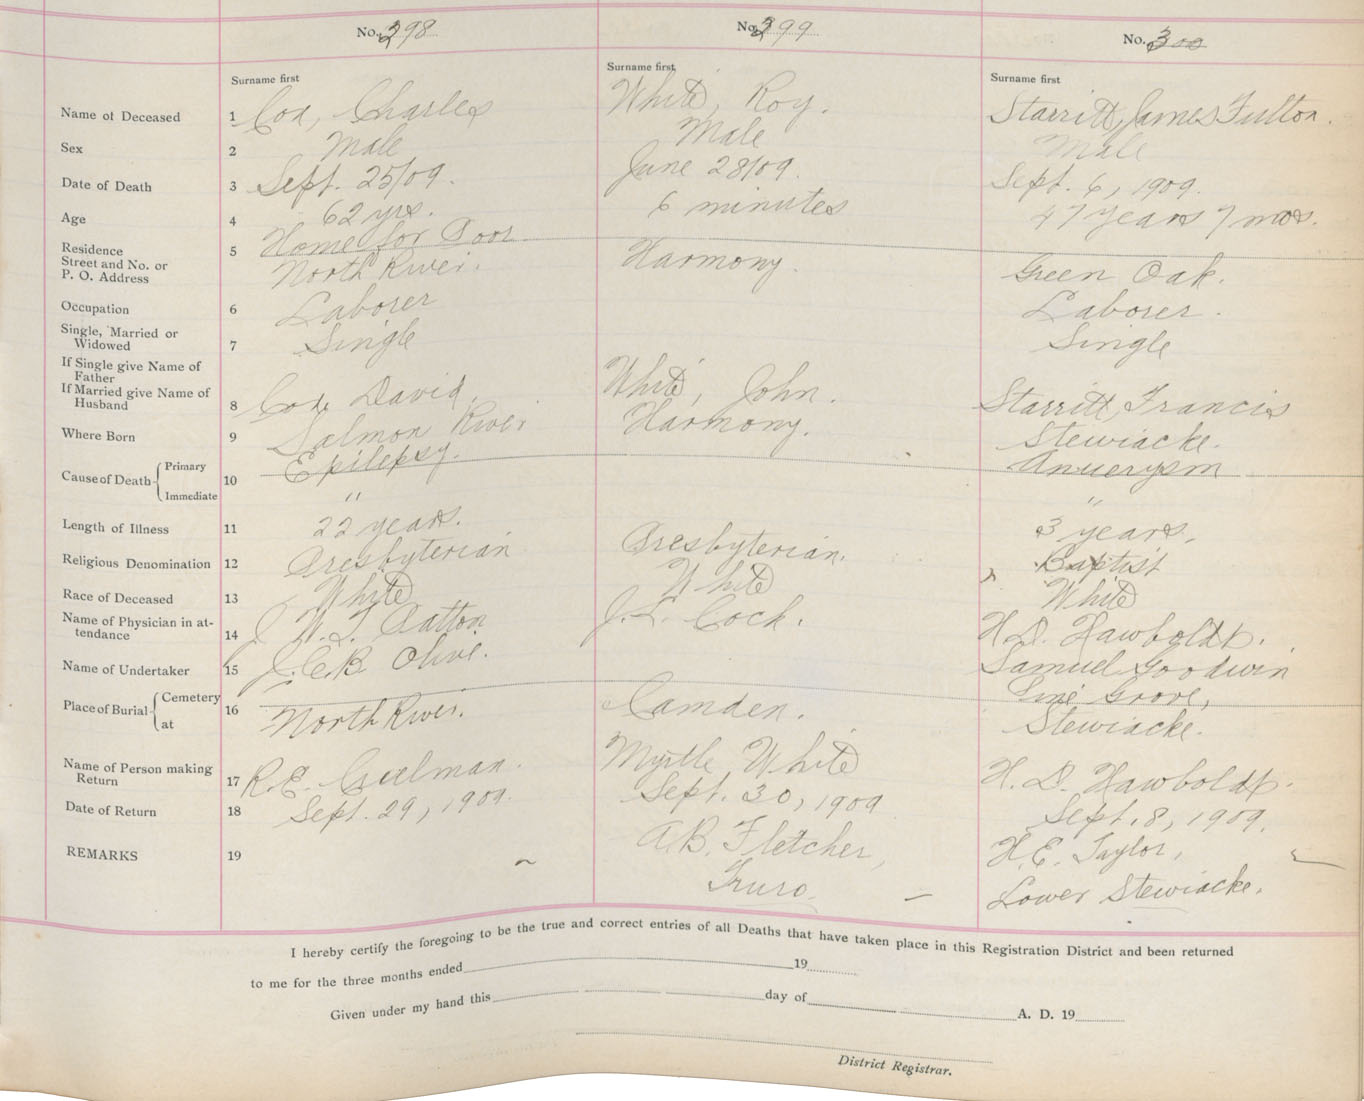 No. 298 No. 299 No. 300
Surname first Surname first Surname first
Name of Deceased 1 Cox, Charles White, Roy. Starritt, James Fulton.
Sex 2 Male Male Male
Date of Death 3 Sept. 25/09. June 28/09. Sept. 6, 1909.
Age 4 62 yrs. 6 minutes 47 years 7 mos.
Residence Home for Poor
Street and No. or 5 North River. Harmony. Green Oak.
P. O. Address
Occupation 6 Laborer Laborer.
Single, Married or
Widowed 7 Single Single
If Single give Name of
Father
If Married give Name of
Husband 8 Cox, David. White, John. Starritt, Francis
Where Born 9 Salmon River Harmony. Stewiacke.
Cause of Death Primary 10 Epilepsy. Anuerysm
Immediate " "
Length of Illness 11 22 years. 3 years.
Religious Denomination 12 Presbyterian Presbyterian. Baptist
Race of Deceased 13 White White White
Name of Physician in at-
tendance 14 J. W. T. Patton J. L. Cock. H. D. Hawboldt.
Name of Undertaker 15 J. C. B. Olive. Samuel Goodwin
Place of Burial Cemetery 16 Grove,
at North River. Camden. Stewiacke.
Name of Person making
Return 17 R. E. Myrtle White H. D. Hawboldt.
Date of Return 18 Sept. 29, 1909. Sept. 30, 1909 Sept. 8, 1909.
REMARKS 19 A. B. Fletcher, H. E. Taylor,
Truro. Lower Stewiacke.
I hereby certify the foregoing to be the true and correct entries of all Deaths that have taken place in this Registration District and been returned
to me for the three months ended 19
Given under my hand this day of A. D. 19
District Registrar.